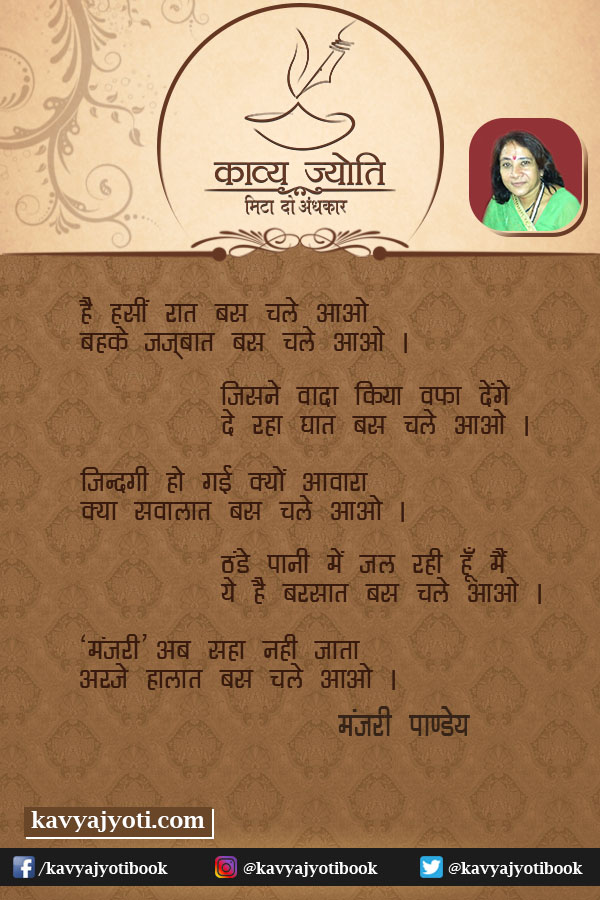 काव्य ज्योति
मिटा दो अंधकार
है हसीं रात बस चले आओ
बहके जज़्बात बस चले आओ ।
जिसने वादा किया वफा देंगे
दे रहा घात बस चले आओ ।
जिन्दगी हो गई क्यों आवारा
क्या सवालात बस चले आओ ।
ठंडे पानी में जल रही हूँ मैं
ये है बरसात बस चले आओ ।
‘मंजरी’ अब सहा नही जाता
अरजे हालात बस चले आओ ।
मंजरी पाण्डेय
kavyajyoti.com
/kavyajyotibook @kavyajyotibook @kavyajyotibook